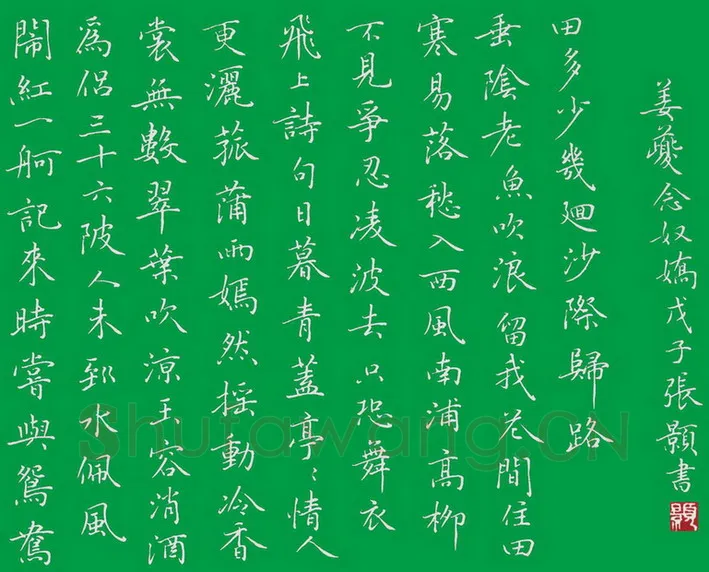 鬧紅一舸記來時嘗與鴛鴦
爲侶三十六陂人未到水佩風
裳無數翠葉吹涼玉容消酒
更灑菰蒲雨嫣然摇動冷香
飛上詩句日暮青蓋亭〻情人
不見爭忍凌波去只恐舞衣
寒易落愁入西風南浦高柳
垂陰老魚吹浪留我花間住田
田多少幾迴沙際歸路
姜夔念奴嬌戊子張顥書
Shufawang.CN